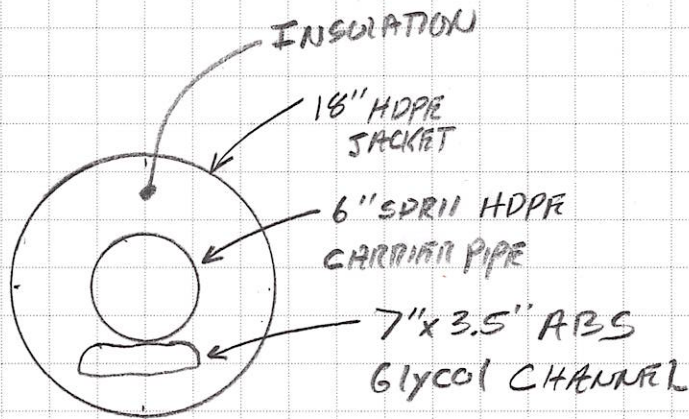 INSULATION
18" HDPE
JACKET
6" SDR11 HDPE
CARRIER PIPE
7" x 3.5" ABS
Glycol CHANNEL